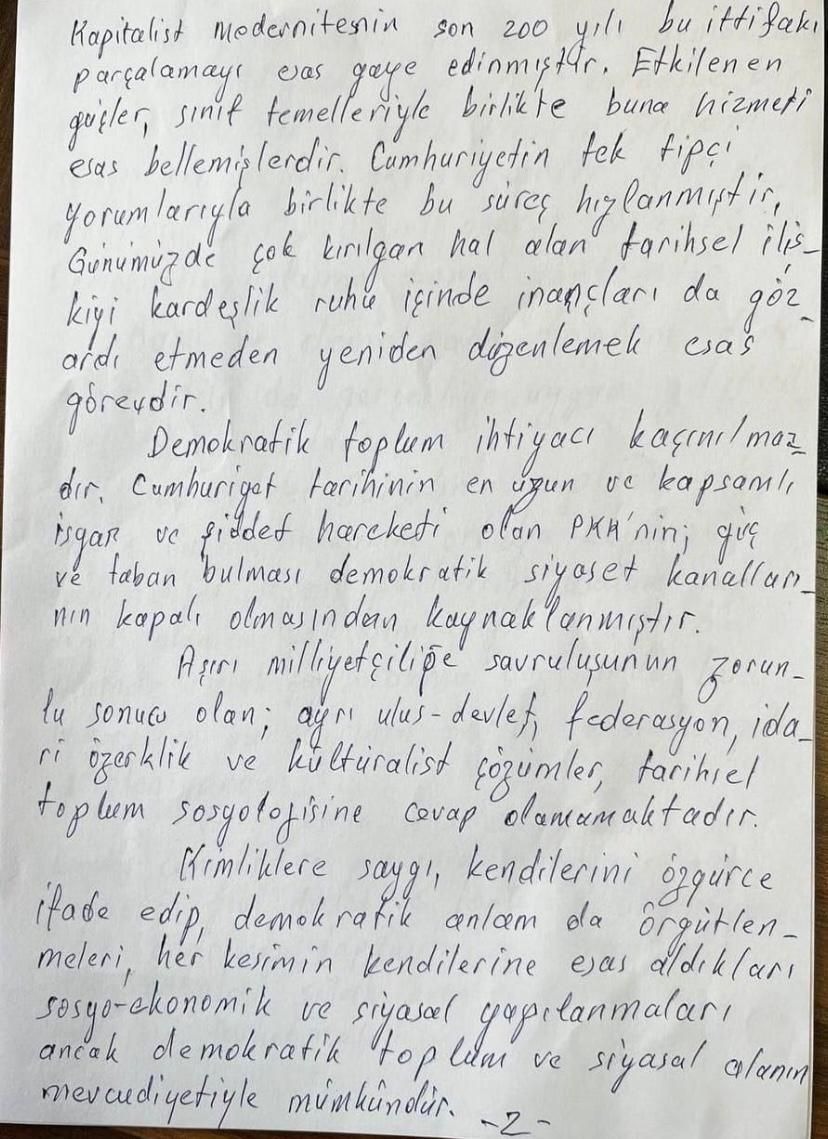 Kapitalist modernitenin son 200 yılı bu ittifakı
parçalamayı esas gaye edinmiştir. Etkilenen
güçler, sınıf temelleriyle birlikte buna hizmeti
esas bellemişlerdir. Cumhuriyetin tek tipçi
yorumlarıyla birlikte bu süreç hızlanmıştır.
Günümüzde çok kırılgan hal alan tarihsel iliş-
kiyi kardeşlik ruhu içinde inançları da göz
ardı etmeden yeniden düzenlemek esas
görevdir.
Demokratik toplum ihtiyacı kaçınılmaz
dır. Cumhuriyet tarihinin en uzun ve kapsamlı
isyan ve şiddet hareketi olan PKK'nin; güç
ve taban bulması demokratik siyaset kanalları-
nın kapalı olmasından kaynaklanmıştır.
Aşırı milliyetçiliğe savruluşunun zorun-
lu sonucu olan; ayrı ulus-devlet, federasyon, ida-
ri özerklik ve kültüralist çözümler, tarihsel
toplum sosyolojisine cevap olamamaktadır.
Kimliklere saygı, kendilerini özgürce
ifade edip, demokratik anlam da örgütlen-
meleri, her kesimin kendilerine esas aldıkları
sosyo-ekonomik ve siyasal yapılanmaları
ancak demokratik toplum ve siyasal alanın
mevcudiyetiyle mümkündür.
-2-